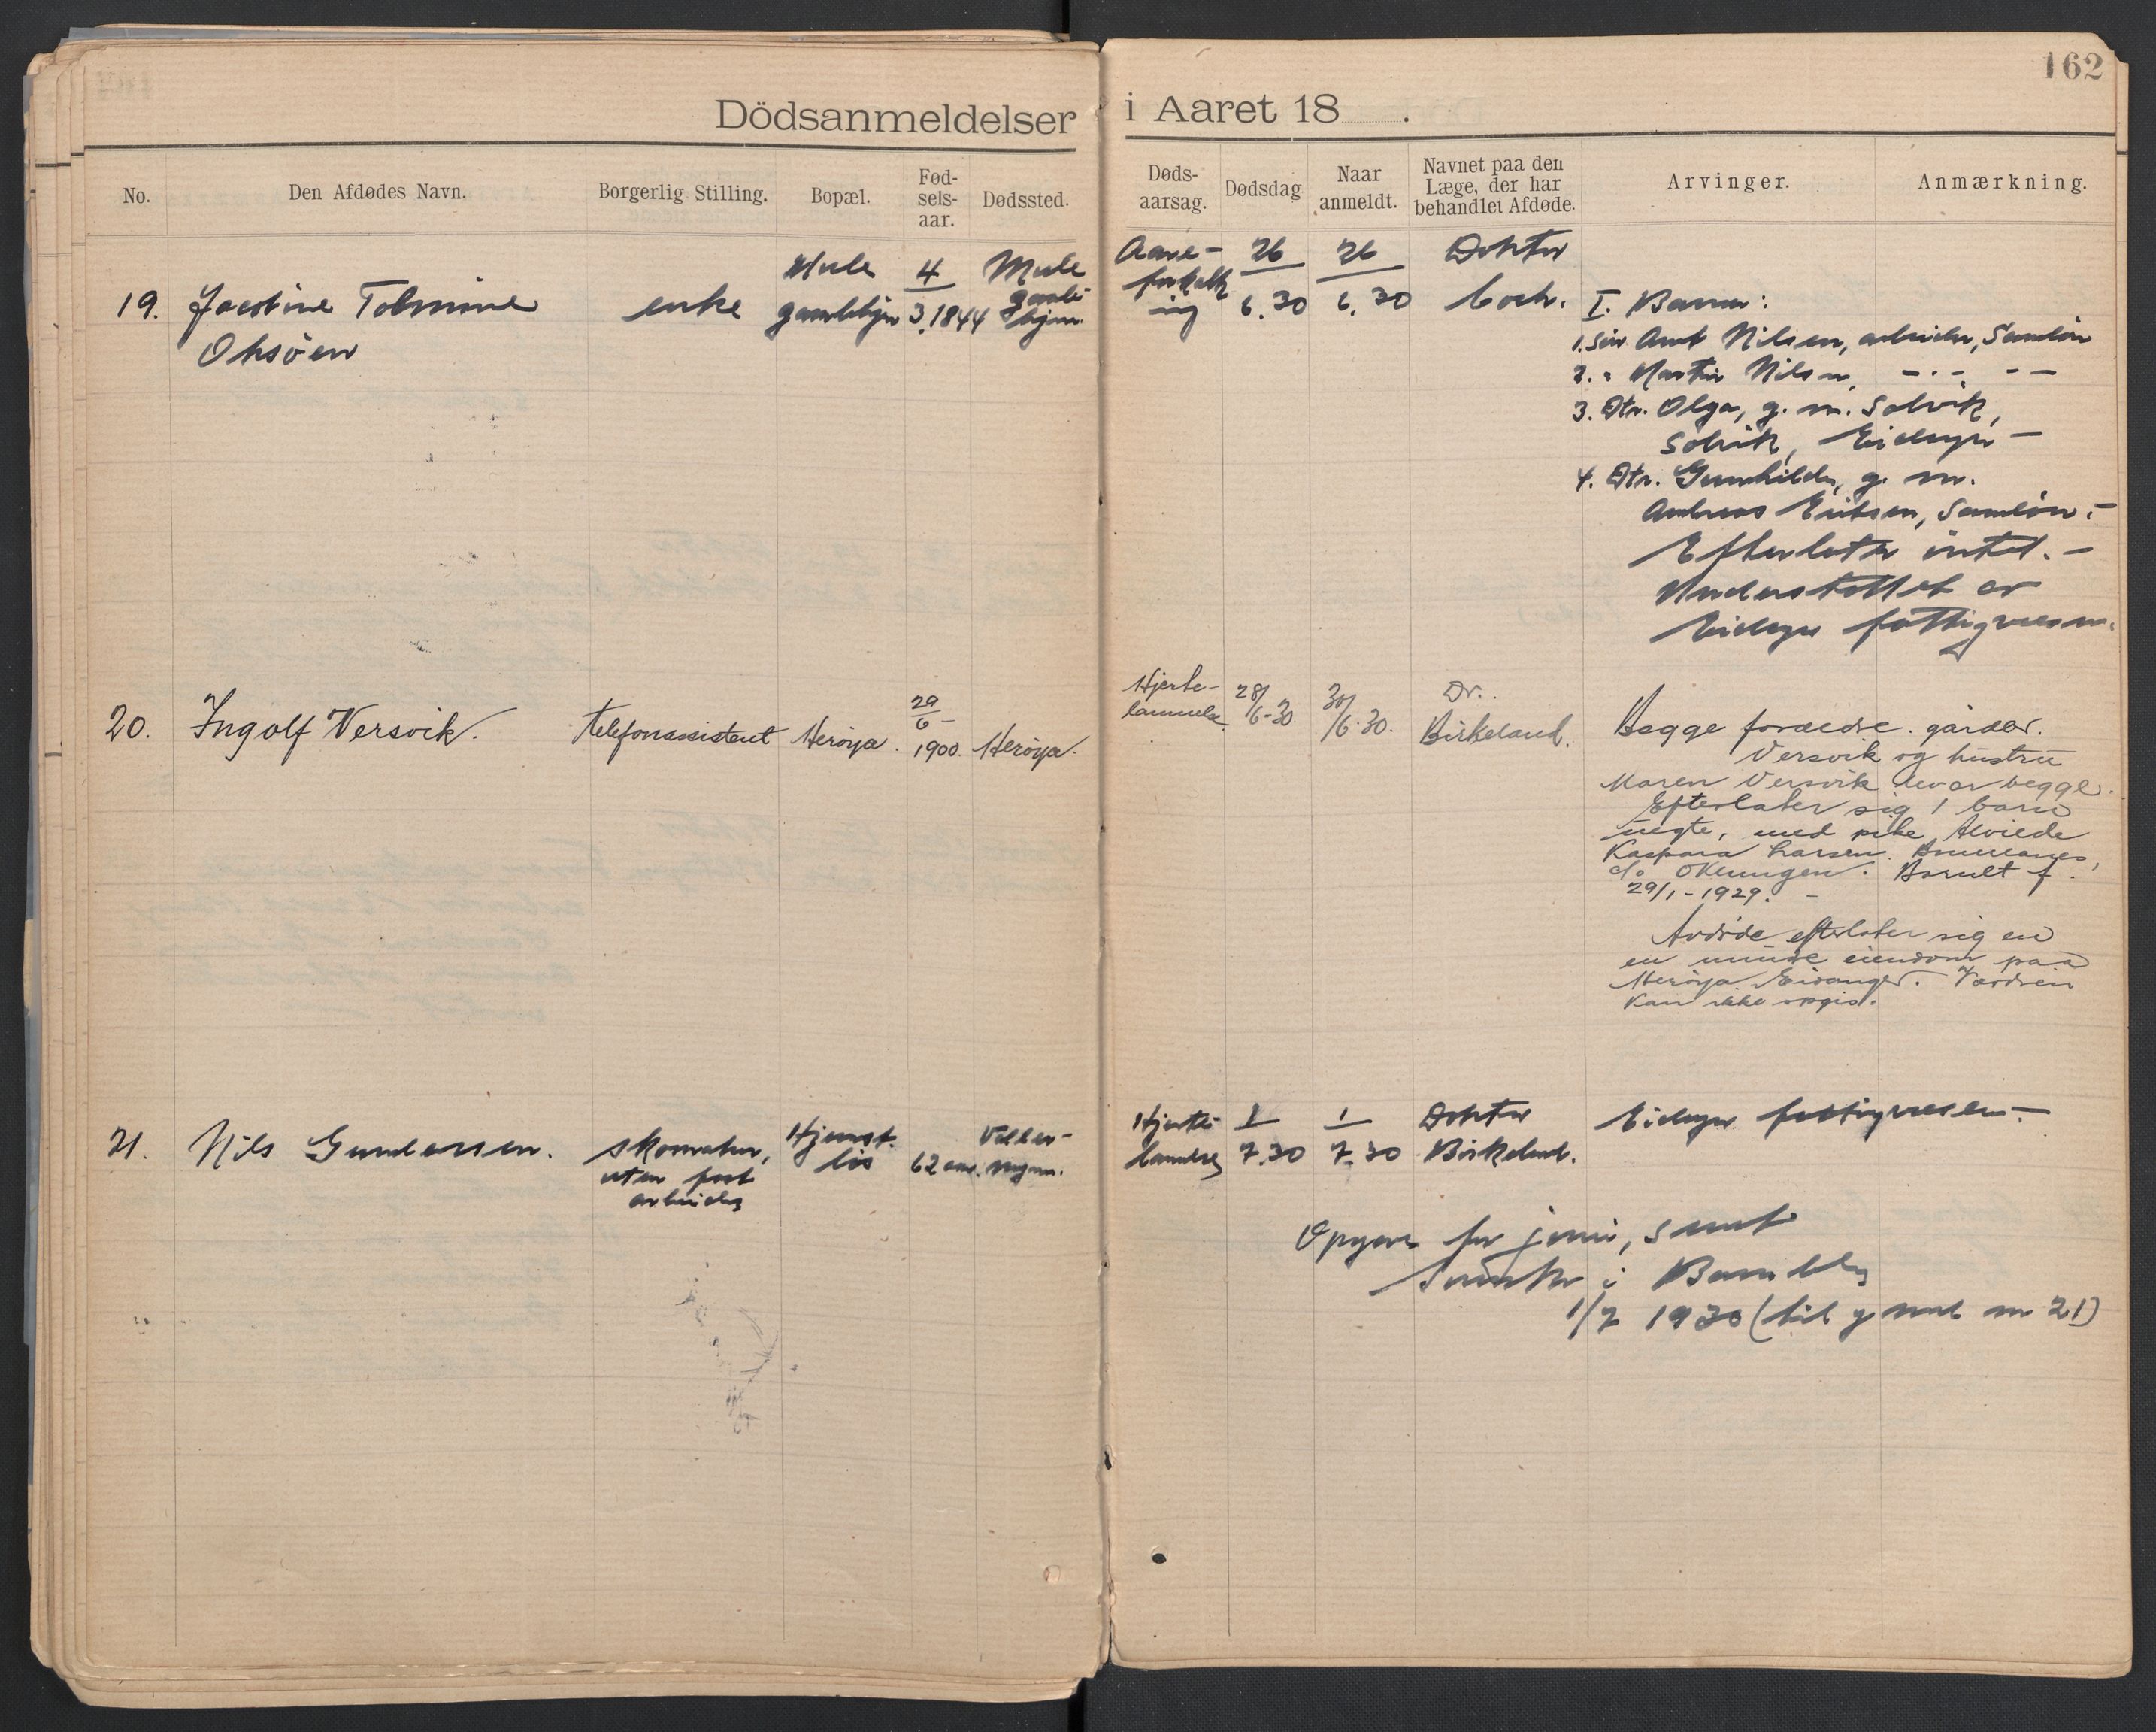 162
Dödsanmeldelser i Aaret 18 .
No. Den Afdødes Navn. Borgerlig Stilling. Bopæl. Fød-sels-aar. Dødssted. Døds-aarsag. Dødsdag Naar anmeldt. Navnet paa den Læge, der har behandlet Afdøde. Arvinger. Anmærkning.
19. Jacobine Tolmine
Oksöen
enke
Mule
gamlehjem
4
3.1844
Mule
gamle
hjem.
Aare-
forkalk
ing
26
6.30
26
6.30
Doktor
Coch.
I. Barn:
1. Sön Amt Nilsen, arbeider, Sandön
2. " Martin Nilsen, - " - - -
3. Dtr. Olga, g. m. Solvik,
Solvik, Eidanger -
4. Dtr. Gunhilda, g. m.
Andreas Eriksen, Sandön. -
Efterlater intet. -
Understöttet av
Eidanger fattigvesen.
20. Ingolf Versvik.
telefonassistent
Heröya.
29
6 -
1900.
Heröya.
Hjerte-
lammelse.
28/
6-30
30/
6.30.
Dr.
Birkeland.
Begge foreldre. gårdbr.
Versvik og hustru
Maren Versvik lever begge.
Efterlater sig 1 barn
uegte, med pike Alvilde
Kaspara Larsen.
do Oklungen. Barnet f.
29/1 - 1929. -
Avdöde efterlater sig en
en mindre eiendom paa
Heröya Eidanger. Værdien
kan ikke opgis.
21. Nils Gundersen.
skomaker,
uten fast
arbeide
Hjemst.
lös
62 aar.
Hjerte-
lammelse
1
7.30
1
7.30
Doktor
Birkeland.
Eidanger fattigvesen. -
Opgave for juni, sendt
i Bamble
1/7 1930 (til og med nr 21)